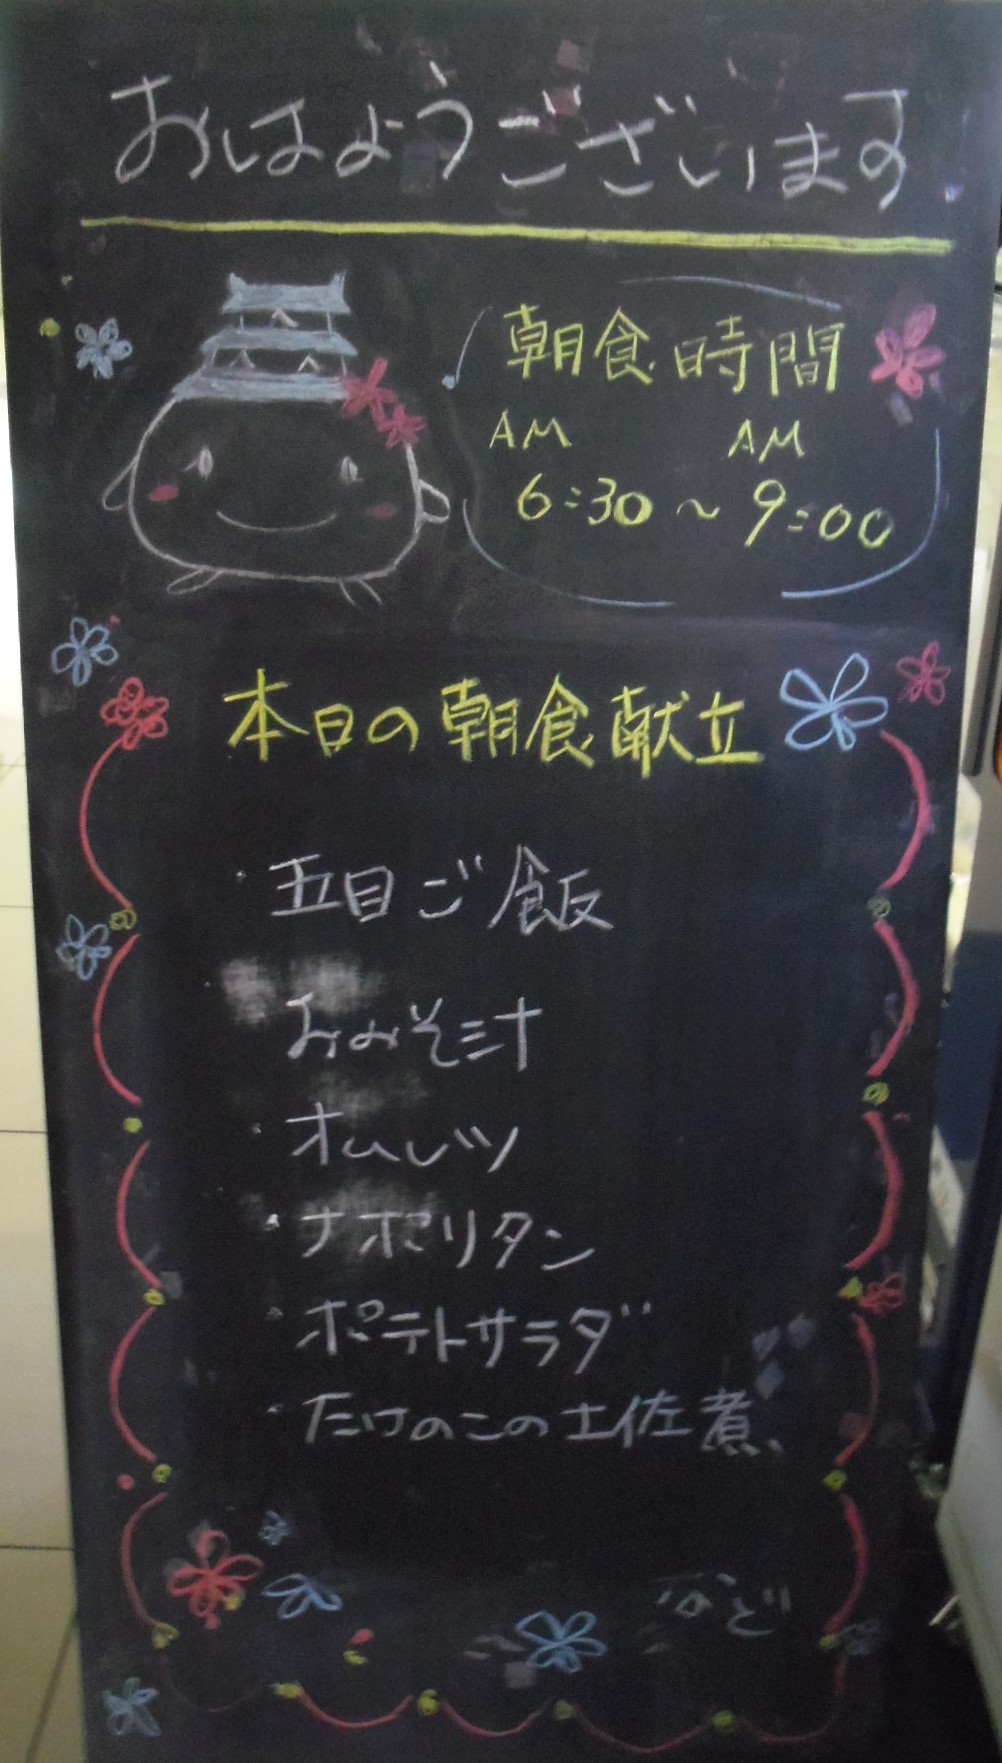 おはようございます
朝食時間
AM AM
6:30～9:00
本日の朝食献立
・五目ご飯
・おみそ汁
・オムレツ
・ナポリタン
・ポテトサラダ
・たけのこの土佐煮
など